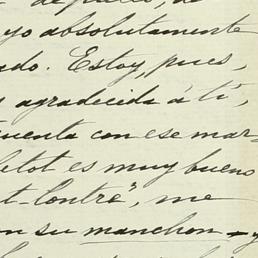 yo absolutamente
ado. Estoy, pues,
agradecida á tí,
uenta con ese mar-
letot es muy bueno
t-Contre", me
on su manchon - y